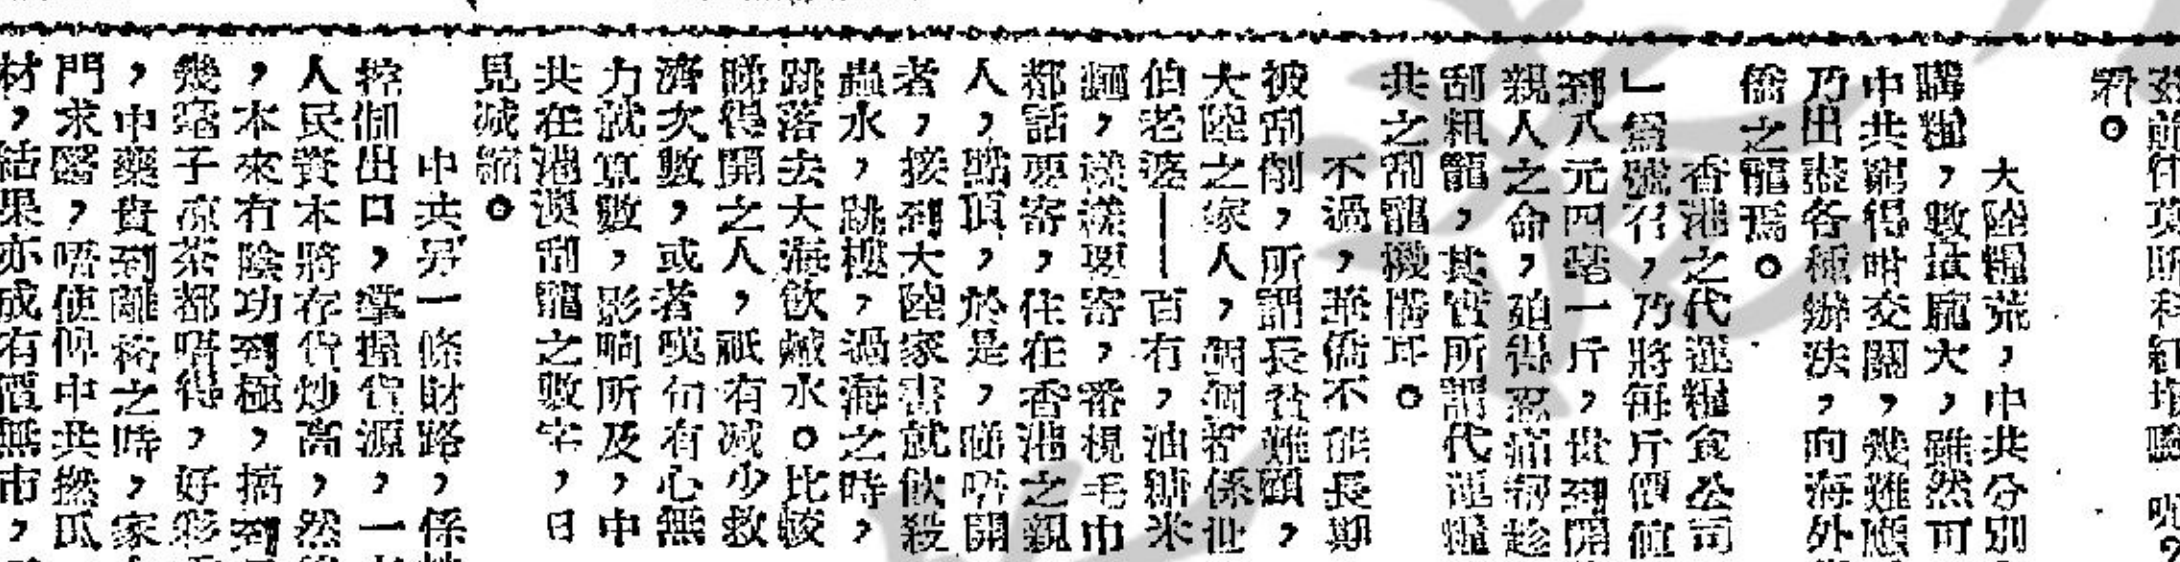 茲前往莫斯科紅場驗
君。
大陸糧荒，中共分別
購糧，數量龐大，雖然可
中共窮得咁交關，幾難應
乃出盡各種辦法，向海外
僑之龍焉。
香港之代運糧食公司
」為號召，乃將每斤價值
到八元四毫一斤，世到開
親人之命，迫得忍痛幫趁
刮粗龍，其實所謂代運糧
共之刮龍機構耳。
不過，華僑不能長期
被刮削，所謂長貧難顧，
大陸之家人，個個都係世
伯老婆｜百有，油糖米
麵，樣樣要寄，番梘毛巾
都話要寄，住在香港之親
人，點頂，於是，睇唔開
者，接到大陸家書就飲殺
蟲水，跳樓，過海之時，
跳落去大海飲鹹水。比較
睇得開之人，祇有減少救
濟次數，或者嘆句有心無
力就算數，影响所及，中
共在港澳刮龍之數字，日
見減縮。
中共另一條財路，係
挖倒出口，掌握貨源，一
人民資本將存貨炒高，然
，本來冇陰功到極，搞到
幾毫子凉茶都唔得，好彩
，中藥貴到離袼之時，家
門求醫，唔使俾中共撚瓜
材，結果亦成有價無市，